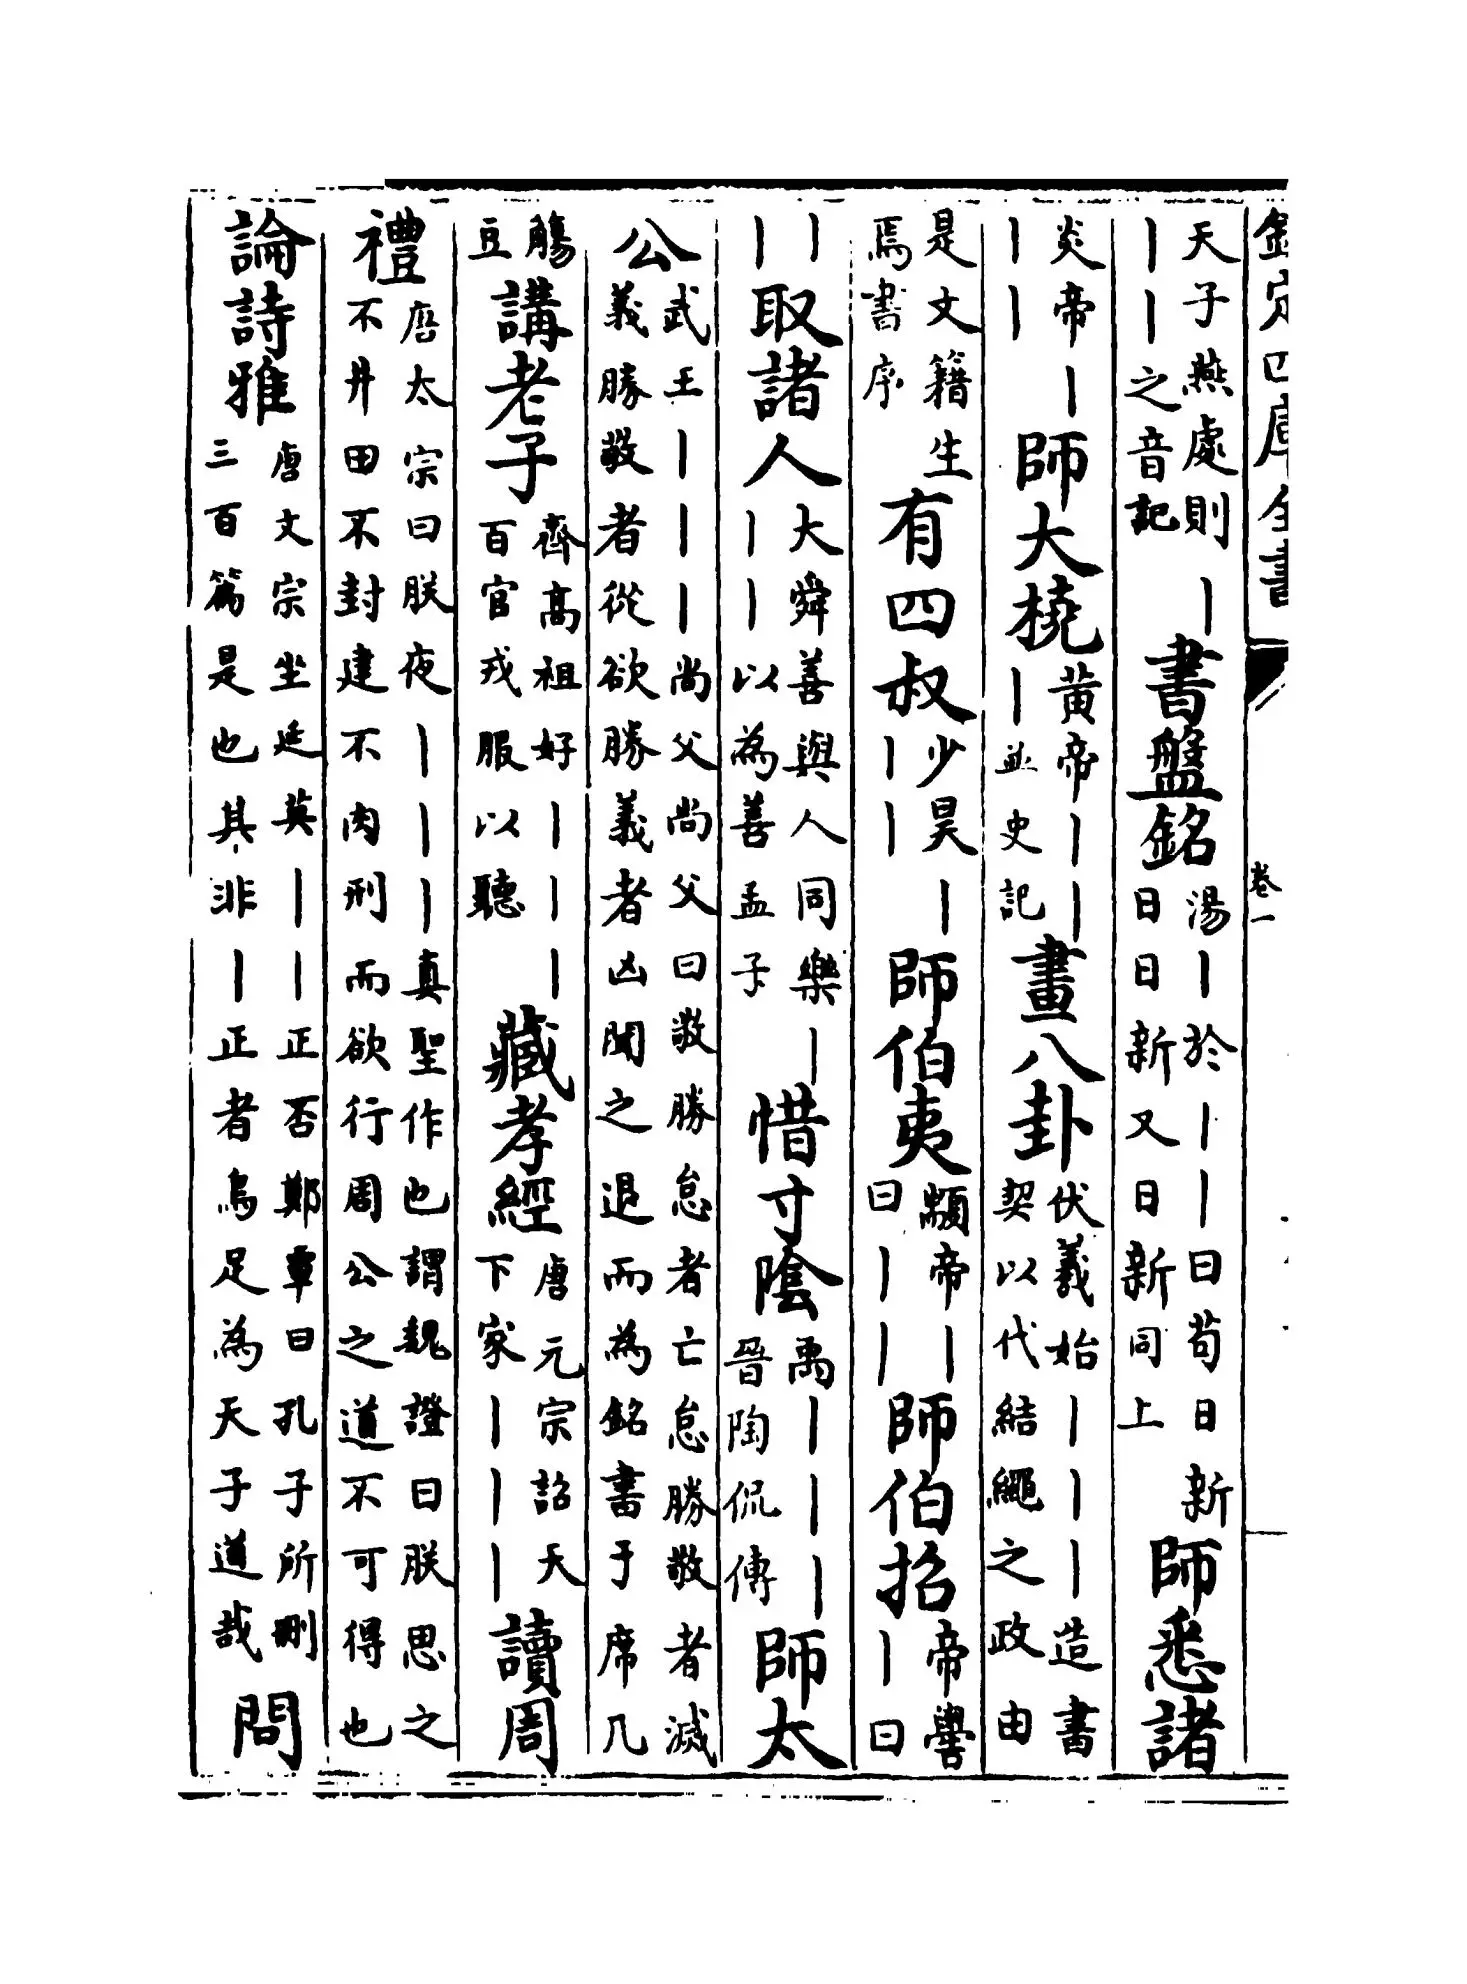 欽定四庫全書
卷一
天子燕處則｜
｜｜之音記
書盤銘
湯｜於｜｜曰苟日新
日日新又日新同上
師悉諸
炎帝｜
｜｜
師大橈
黃帝｜｜
｜並史記
畫八卦
伏羲始｜｜｜造書
契以代結繩之政由
是文籍生
焉書序
有四叔
少昊｜
｜｜
師伯夷
顓帝｜
曰｜｜
師伯招
帝嚳
｜曰
｜
｜
取諸人
大舜善與人同樂｜
｜｜以為善孟子
惜寸陰
禹｜｜｜
晉陶侃傳
師太
公
武王｜｜｜尚父尚父曰敬勝怠者亡怠勝敬者滅
義勝敬者從欲勝義者凶聞之退而為銘書于席几
觴
豆
講老子
齊高祖好｜｜｜
百官戎服以聽
藏孝經
唐元宗詔天
下家｜｜｜
讀周
禮
唐太宗曰朕夜｜｜｜真聖作也謂魏證曰朕思之
不井田不封建不肉刑而欲行周公之道不可得也
論詩雅
唐文宗坐廷英｜｜正否鄭覃曰孔子所刪
三百篇是也其非｜正者烏足為天子道哉
問